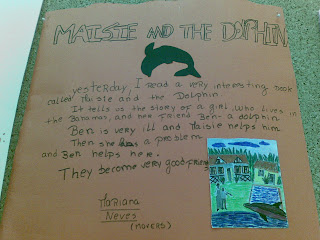 MAISIE AND THE DOLPHIN
yesterday, I read a very interesting book
called Maisie and the Dolphin.
It tells us the story of a girl, who lives in
the Bahamas, and her friend Ben- a dolphin
Ben is very ill and Maisie helps him
Then she has a problem
and Ben helps here.
They become very good friends
Mariana
Neves